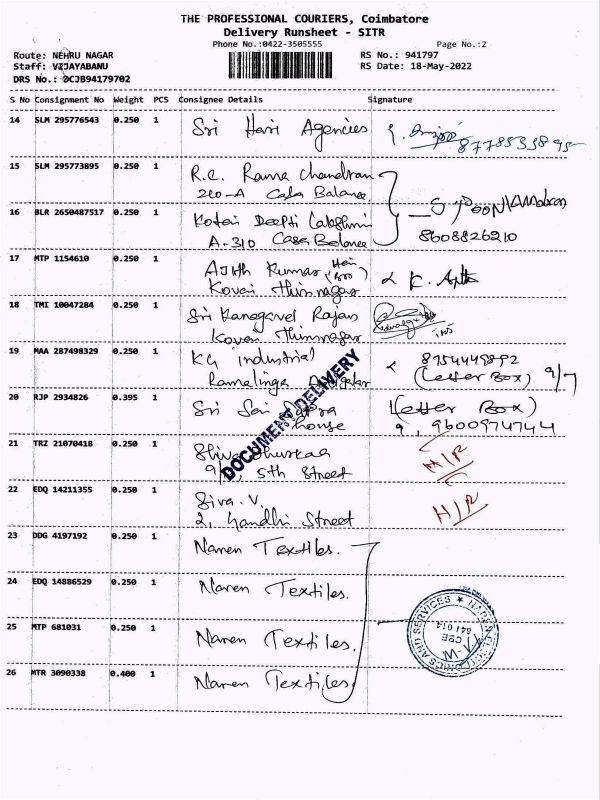 THE PROFESSIONAL COURIERS, Coimbatore
Delivery Runsheet - SITR
Phone No.:0422-3505555 Page No.:2
Route: NEHRU NAGAR RS No.: 941797
Staff: VIJAYABANU RS Date: 18-May-2022
DRS No.: OCJB94179702
S No Consignment No Weight PCS Consignee Details Signature
14 SLM 295776543 0.250 1 Sri Hari Agencies
15 SLM 295773895 0.250 1 R.C. Rama Chandran
210-A Casa Balance
16 BLR 2650487517 0.250 1 Kotai Deepti Lakshmi 8608826210
A-310 Casa Balance
17 MTP 1154610 0.250 1 Ajith Kumar
Kovai Thirunagar
18 TMI 10047284 0.250 1 Sri Kanagavel Rajan
Kovai Thirunagar
19 MAA 287498329 0.250 1 KG Industrial 8754449892
Ramalinga (Letter Box) 9/7
20 RJP 2934826 0.395 1 Sri Sai (Letter Box)
house 9, 9600974744
DOCUMENT DELIVERY
21 TRZ 21070418 0.250 1
5th Street
22 EDQ 14211355 0.250 1 Siva. V.
2, Gandhi Street
23 DDG 4197192 0.250 1 Naren Textiles.
24 EDQ 14886529 0.250 1 Naren Textiles.
25 MTP 681031 0.250 1 Naren Textiles.
26 MTR 3090338 0.400 1 Naren Textiles.
AND SERVICES
CBE
641 014